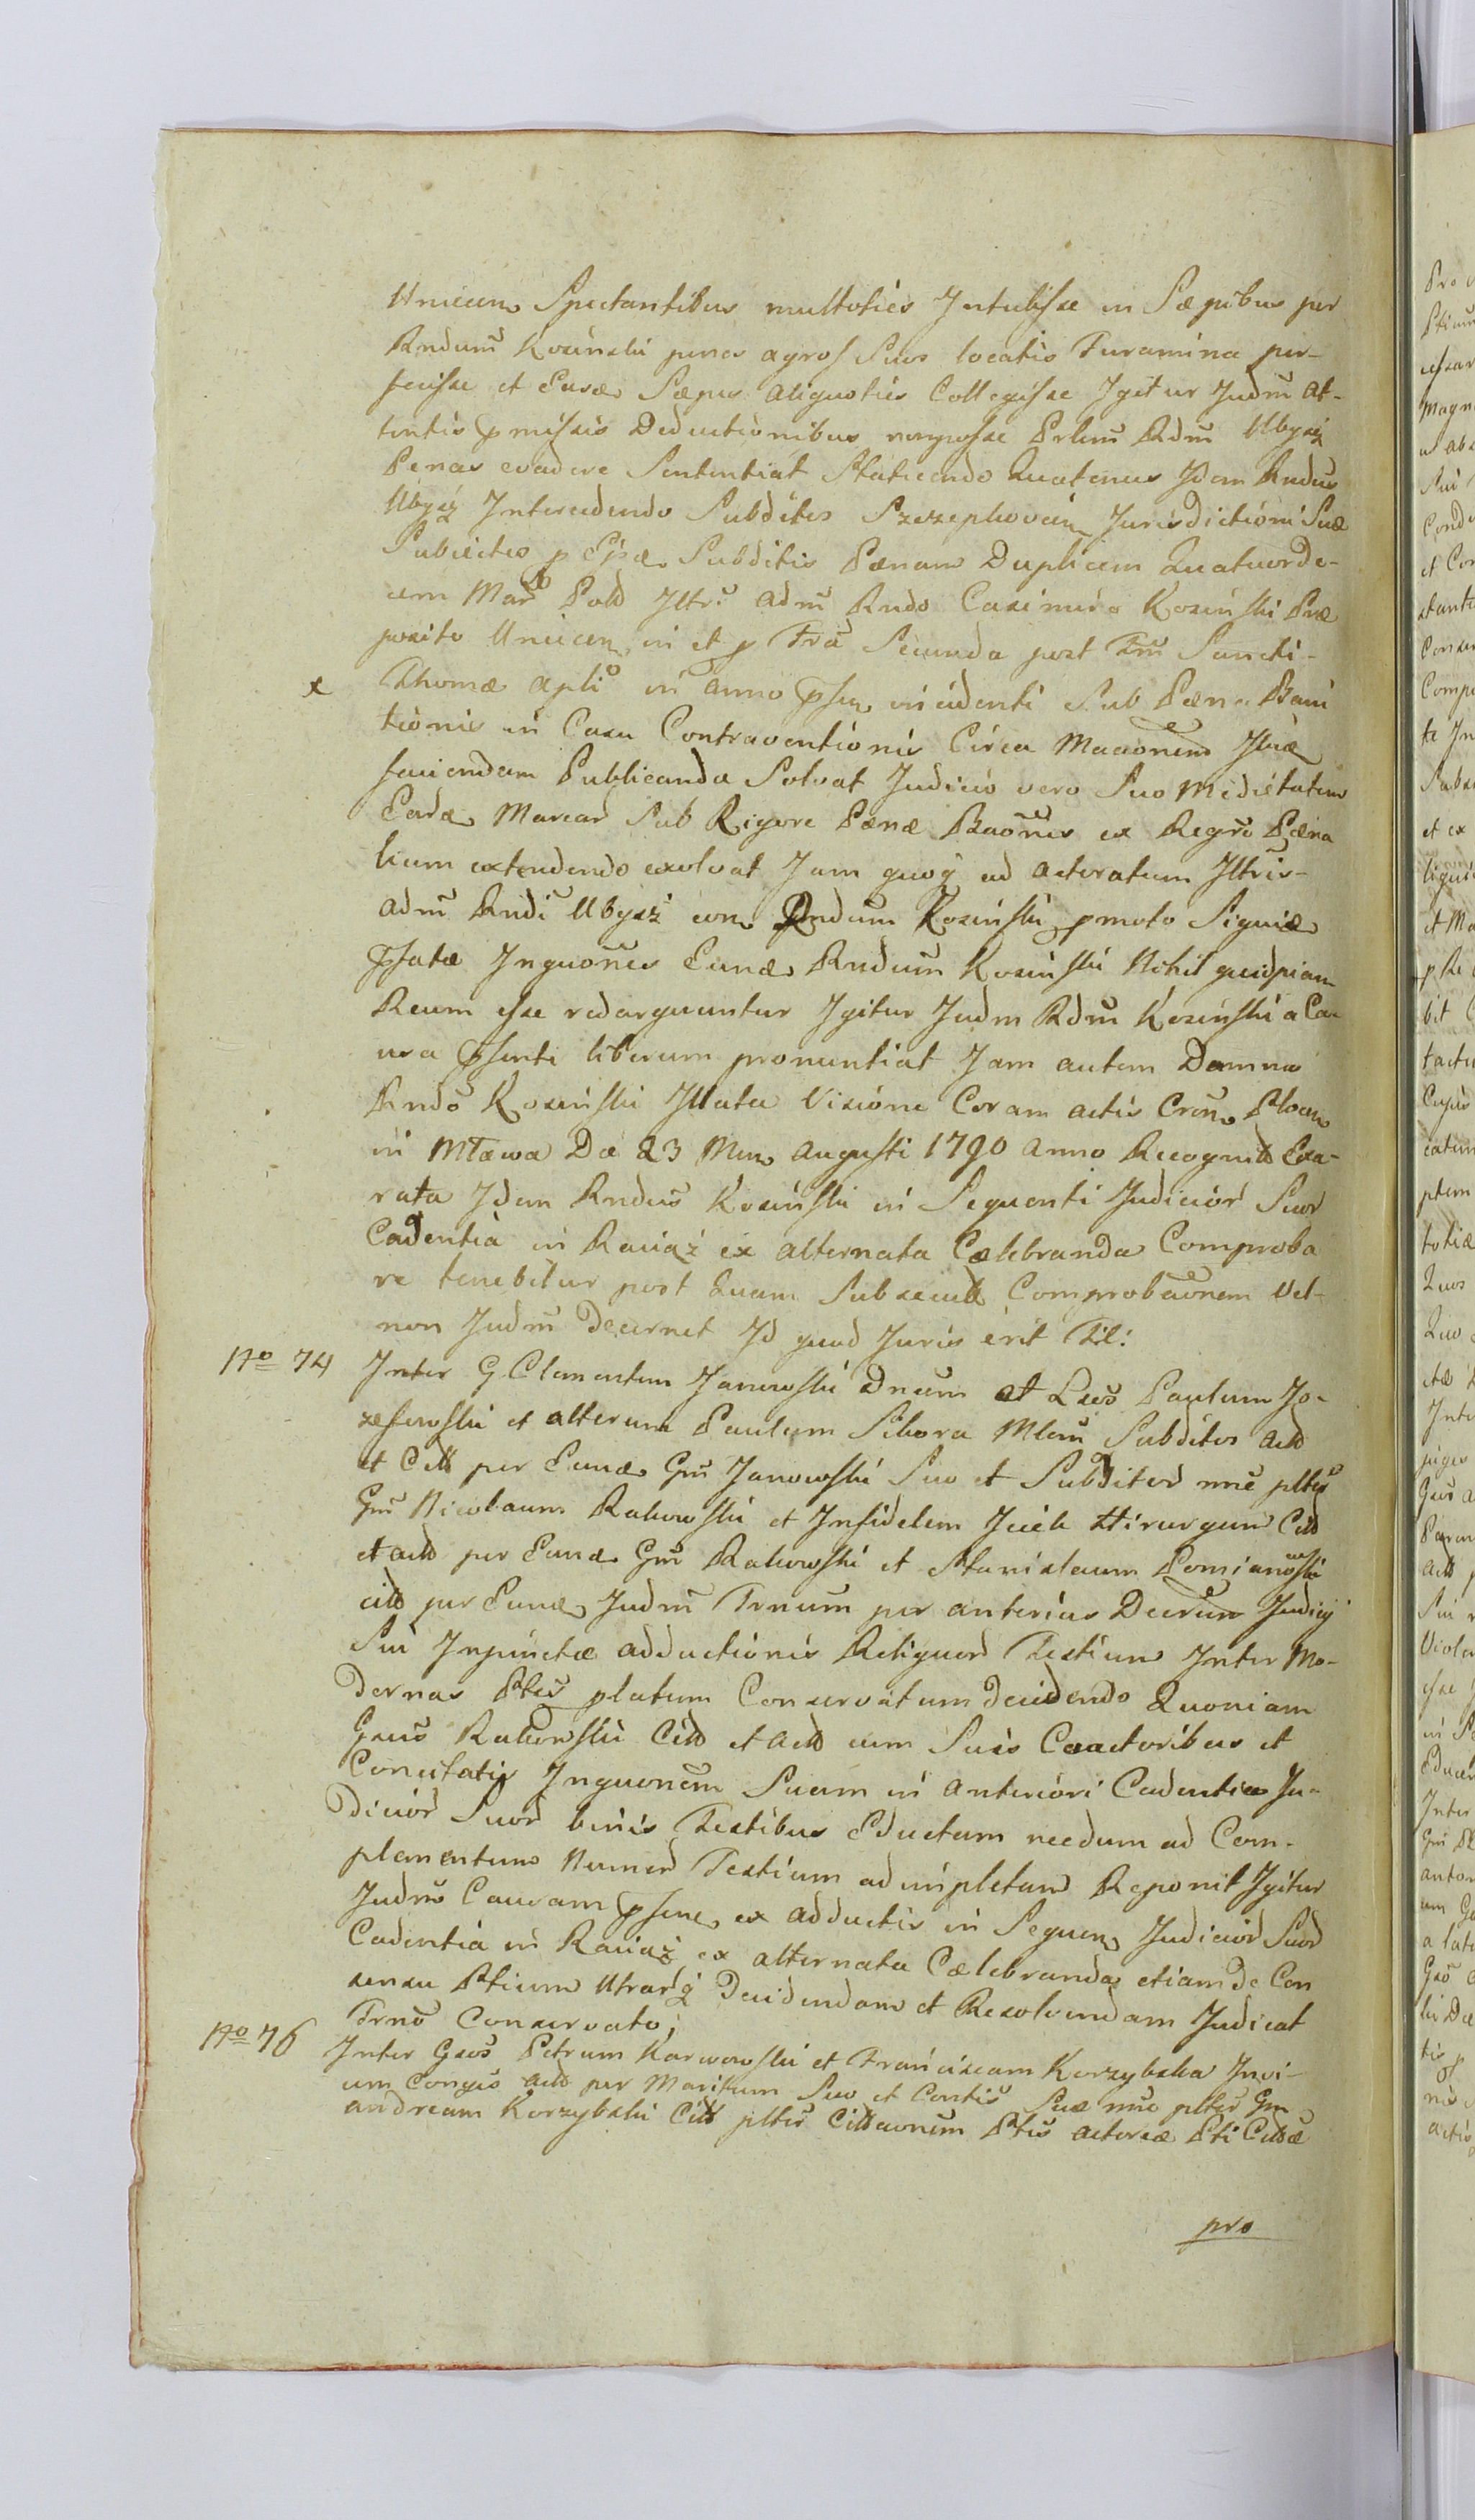 Unieccn Spectantibus multoties Intulisse in Sæpibus per
Rndum Kosinski penes agros Suos locatis Furamina per-
fecisse et Easde Sæpes aliquoties Collegisse Igitur Judm at-
tentis pmissis Deductionibus nonposse Perlem Rdm Ubysz
Penas evadere Sententiat Statuendo Quatenus Idem Rndus
Ubysz Intercedendo Subditos Szczephovien Jurisdictioni Suæ
Subiectos p Subditis Pænam Duplicem Quatuorde-
cem Mar Pol Iltri adm Rndo Casimiro Kosinski Præ
posito Uniecen in et p Fra Secunda post Fm Sancti-
x Thomæ apli in anno psen incidenti Sub Pæna Bani
tionis in Casu Contraventionis Circa
faciendam Publicanda Solvat Judicio vero Suo Medietatem
Earde Marcar Sub Rigore Pænæ Baonis ex Regro Pæna
lium extendendo exolvat Jam quoq ad actoratum Iltris-
adm Rndi Ubysz con Rndum Kosinski pmoto Siquid
pfatæ Inquones Eunde Rndum Kosinski Nihil quidpiam
Reum esse redarguuntur Igitur Judm Rdm Kosinski a Cau
usa psenti liberum pronuntiat Jam autem Damna
Rndo Kosinski Illata Visione Coram actis Cren Plocen
in Mława Da 23 Men Augusti 1790 Anno Recognit Exa-
rata Idem Rndus Kosinski in Sequenti Judicior Suor
Cadentia in Raciąż ex alternata Cælebranda Comproba
re tenebitur post Quam Subsecut Comprobaonem Vel-
non Judm Decernet Id quod Juris erit
No 74 Inter G Clementem Janowski Dnum et Lsos Paulum Jo-
zefowski et alterum Paulum Sikora Mleni Subditos act
et Citt per Eunde Gm Janowski Suo et Subditor nne pltes
Gm Nicolaum Rakowski et Infidelem Jcick Hirurgum Citt
et act per Eunde Gm Rakowski et Stanislaum Pomianowski
citt per Eunde Judm Trnum per anterius Decrum Judicij
Sui Injunctæ adductionis Reliquor Testium Inter Mo-
dernas Ptes platum Conservatum decidendo Quoniam
Gsus Rakowski Citt et act cum Suis Coactoribus et
Concitatis Inquonem Suam in anteriori Cadentia Ju-
dicior Suor binis Testibus Eductam necdum ad Com-
plementum Numer Testium adimpletam Reponit Igitur
Judm Causam psene ex adductis in Sequen Judicior Suor
Cadentia in Raciąż ex alternata Cælebranda etiam de Con
sensu Ptium Utrarq Decidendam et Resolvendam Judicat
Trno Conservato;
No 76 Inter Gsos Petrum Karwowski et Franciscam Korzybska Invi-
cem Conges act per Maritum Suo et Contis Suæ nne pltes Gm
andream Korzybski Citt pltes Cittaonem Ptis actoreæ Pti Cittæ
pro